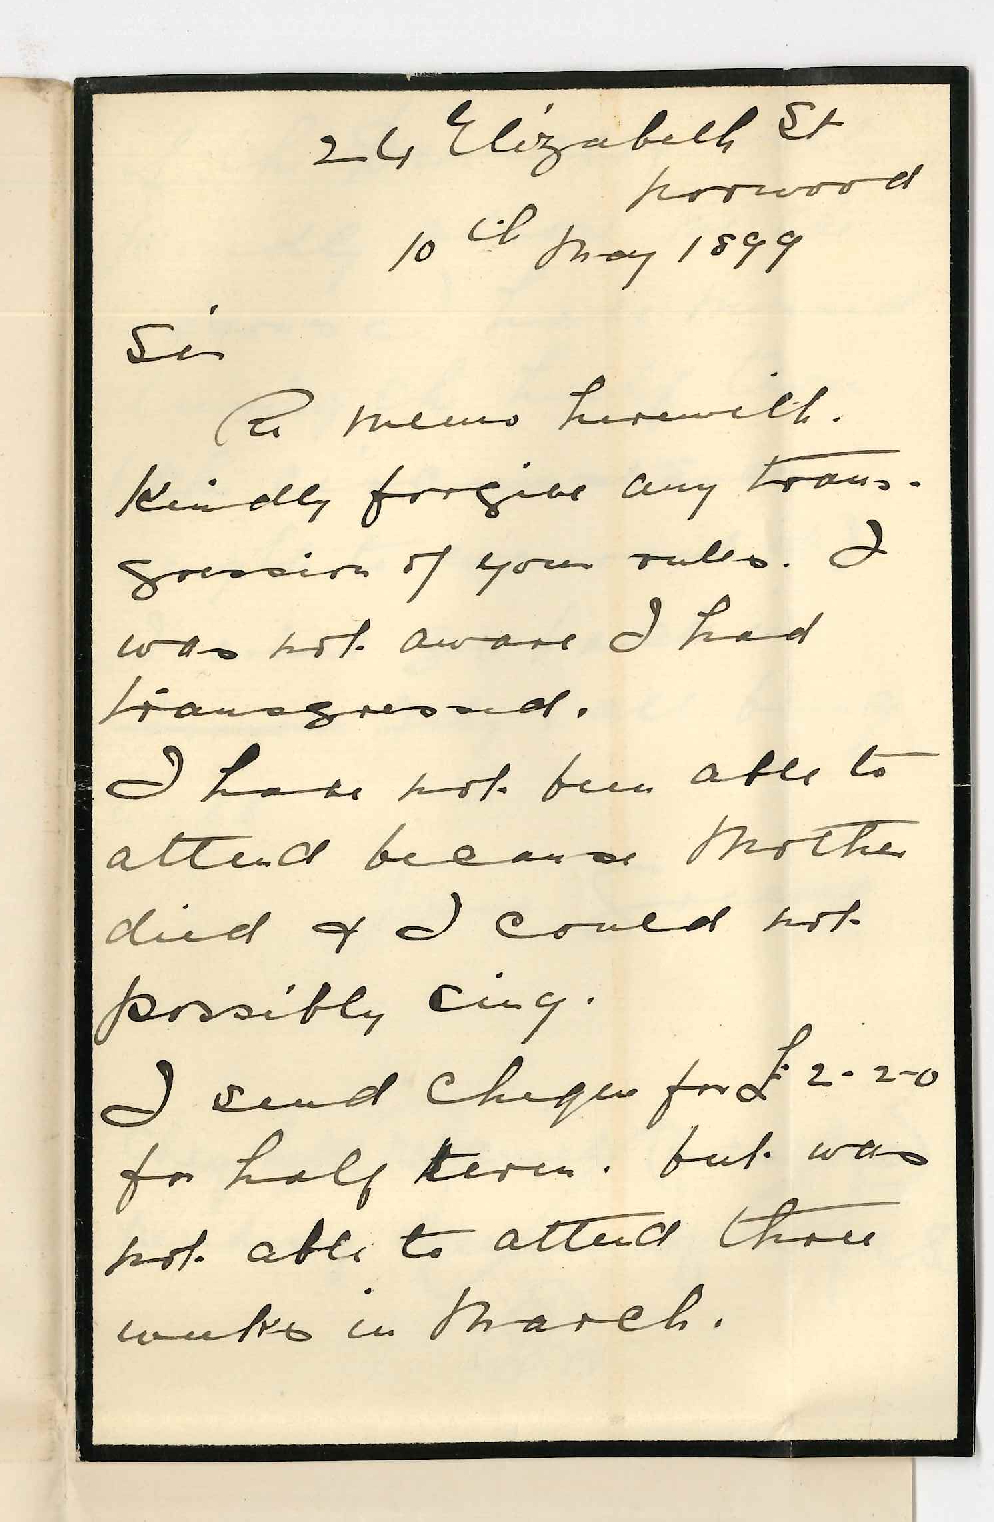 24 Elizabeth St
Norwood
10th May 1899
Sir
Re memo herewith.
Kindly forgive any trans-
gression of your rules. I
was not aware I had
transgressed.
I have not been able to
attend because Mother
died & I could not
possibly sing.
I send cheque for £2-2-0
for half term. but was
not able to attend three
weeks in March.